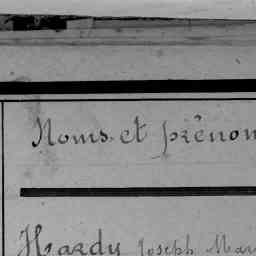 Noms et prénom
Hardy Joseph Mar